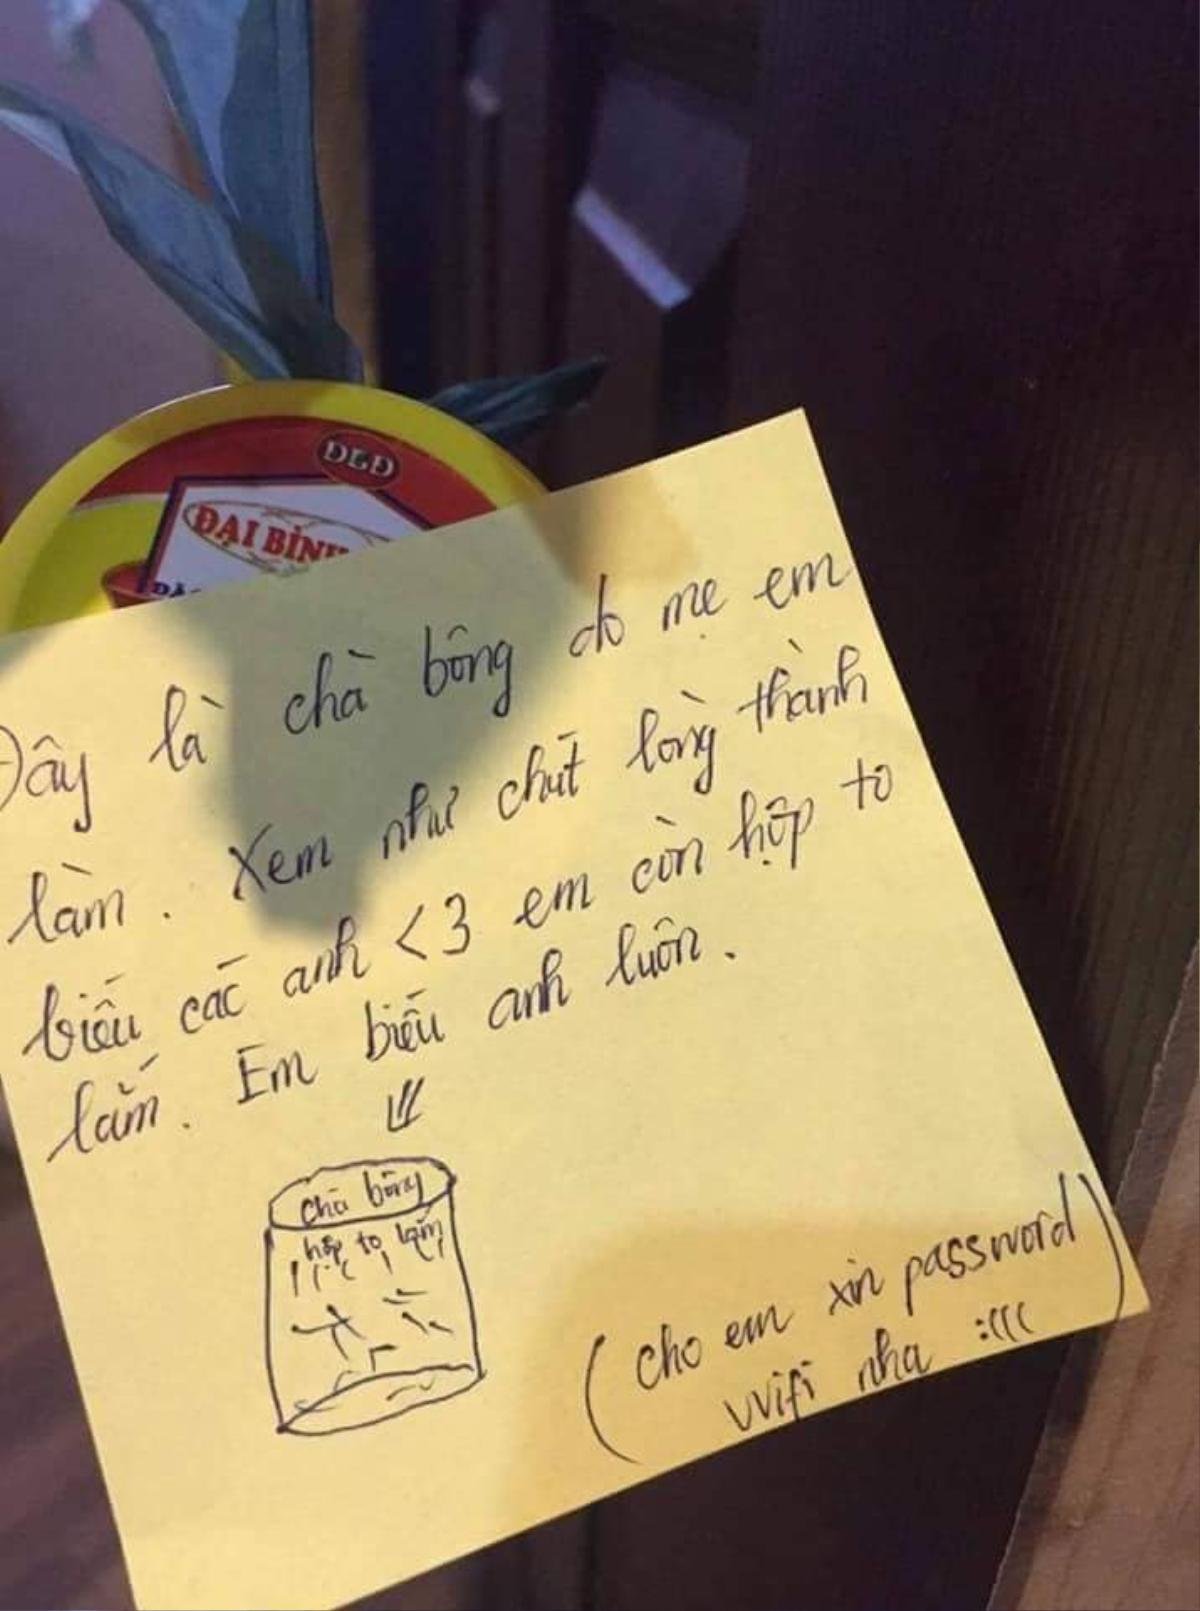 DBD
ĐẠI BÌNH
Đây là chà bông do mẹ em
làm. Xem như chút lòng thành
biếu các anh <3 em còn hộp to
lắm. Em biếu anh luôn.
chà bông
hộp to lắm
(cho em xin password
wifi nha :((( )